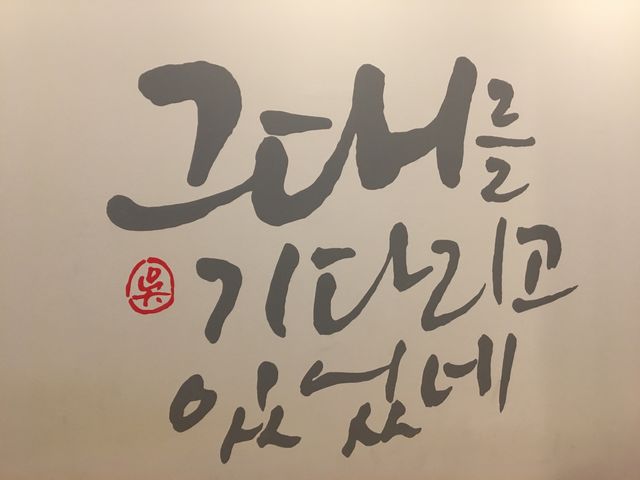 그대를
吳
기다리고
있었네